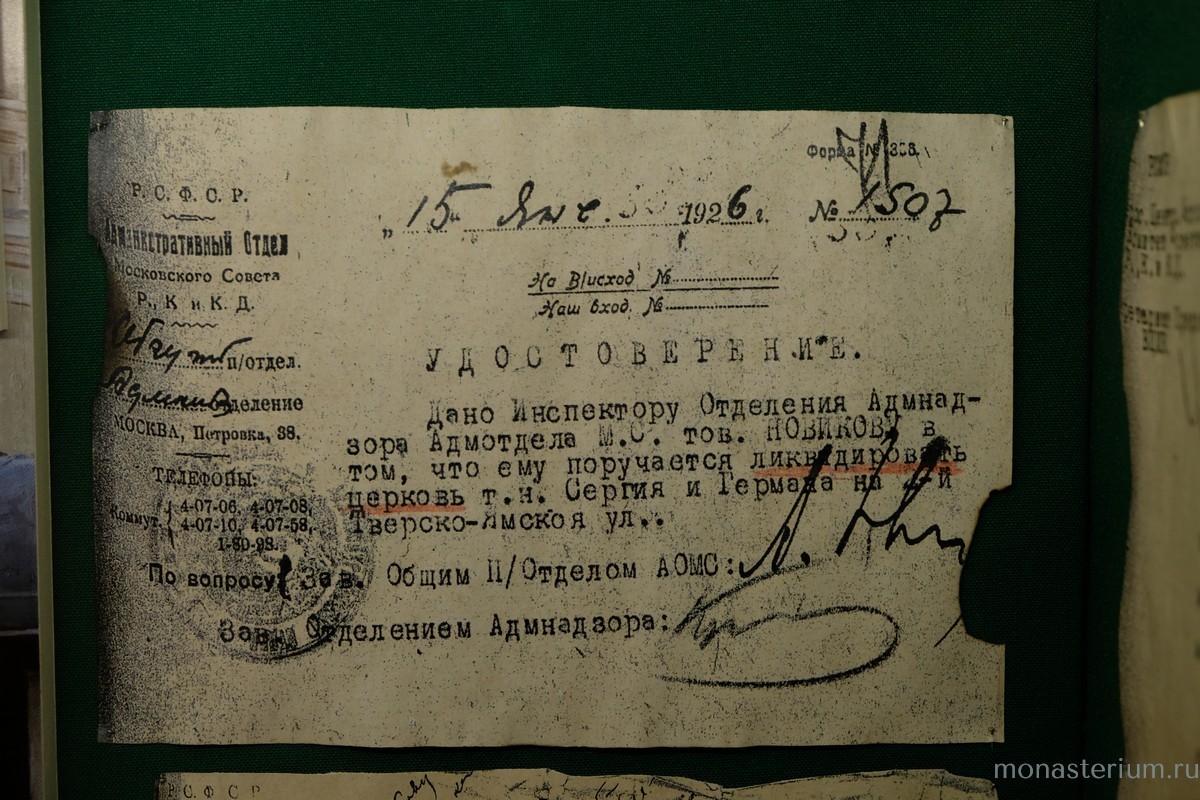 Форма № 356.
Р. С. Ф. С. Р.
„15" Янв. 1926 г. № 1507
Административный Отдел
Московского Совета
Р., К и К. Д.
п/отдел.
отделение
МОСКВА, Петровка, 38.
ТЕЛЕФОНЫ:
Коммут. 4-07-06, 4-07-08,
4-07-10, 4-07-58,
1-80-93.
По вопросу
На В/исход №
Наш вход. №
УДОСТОВЕРЕНИЕ.
Дано Инспектору Отделения Адмнад-
зора Адмотдела М.С. тов. НОВИКОВУ в
том, что ему поручается ликвидировать
церковь т.н. Сергия и Германа на й
Тверско-Ямскоя ул..
Зав. Общим П/Отделом АОМС:
Зав. Отделением Адмнадзора:
Р С Ф С Р
monasterium.ru